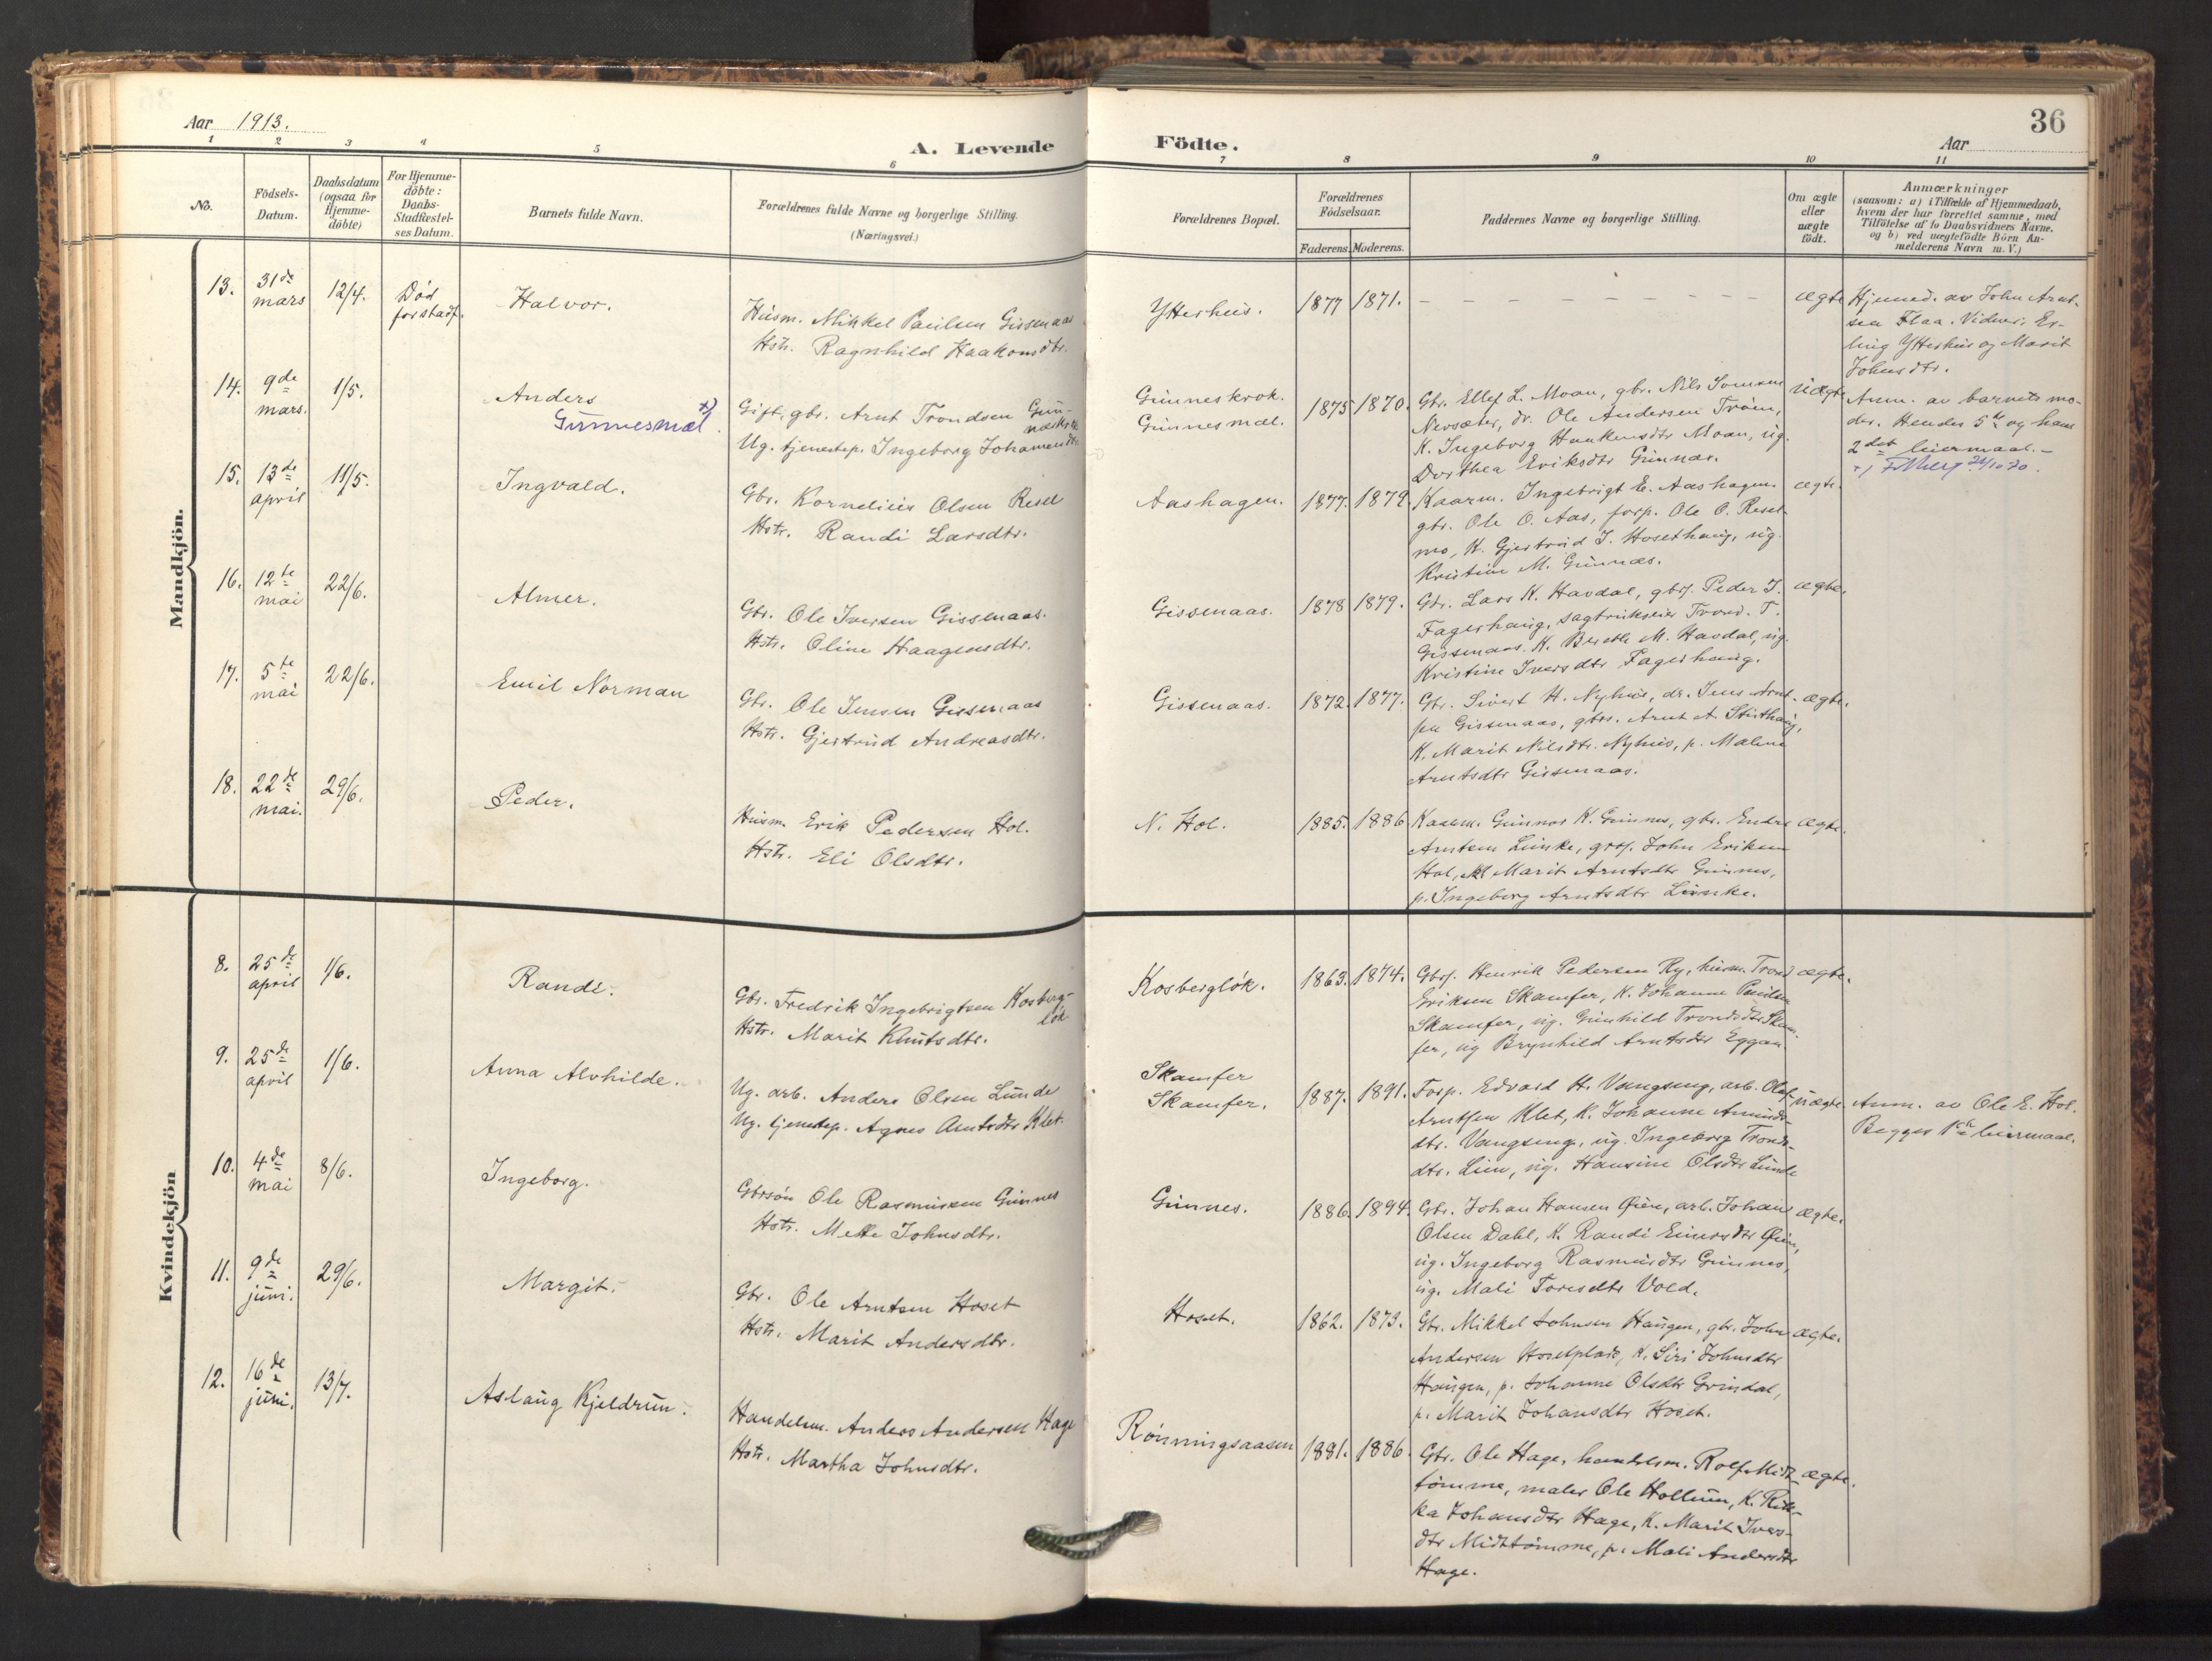 Aar 1913.
A. Levende Födte.
Aar
36
1 2 3 4 5 6 7 8 9 10 11
No.
Födsels-
Datum.
Daabsdatum
(ogsaa for
Hjemme-
döbte)
For Hjemme-
döbte:
Daabs-
Stadfæstel-
ses Datum.
Barnets fulde Navn.
Forældrenes fulde Navne og borgerlige Stilling.
(Næringsvei.)
Forældrenes Bopæl.
Forældrenes
Födselsaar.
Faderens. Moderens.
Faddernes Navne og borgerlige Stilling.
Om ægte
eller
uægte
födt.
Anmærkninger
(saasom: a) i Tilfælde af Hjemmedaab,
hvem der har forrettet samme, med
Tilföielse af to Daabsvidners Navne.
og b) ved uægtefödte Börn An-
melderens Navn m. V.)
Mandkjön.
13. 31de
mars
12/4.
Död
før stadf.
Halvor.
Husm. Mikkel Paulsen Gissenaas
Hstr. Ragnhild Haakonsdtr.
Ytterhus.
1877 1871.
– – – – – – – – –
ægte
Hjemmed. av John Arnt-
sen Flaa. Vidner: Er-
ling Ytterhus og Marit
Johnsdtr.
14. 9de
mars.
1/5.
Anders
Gunnesmæl x)
Gift gbr. Arnt Trondsen Gun-
neskrok
Ug. tjenestep. Ingeborg Johannesdtr.
Gunneskrok.
Gunnesmæl.
1875 1870.
Gbr. Ellef L. Moan, gbr. Nils
Nevsæter, dr. Ole Andersen Trøen,
K. Ingeborg Haakensdtr Moan, ug.
Dorthea Eriksdtr Gunnes.
uægte
Anm. av barnets mo-
der. Hendes 5te og hans
2det leiermaal.–
15. 13de
april
11/5.
Ingvald.
Gbr. Kornelius Olsen Resell
Hstr. Randi Larsdtr.
Aashagen.
1877. 1879.
Kaarm. Ingebrigt E. Aashagen.
gbr. Ole O. Aas, forp. Ole O. Resel-
mo, K. Gjertrud J. Hosethaug, ug.
Kristine M. Gunnes.
ægte.
16. 12te
mai
22/6.
Almer.
Gbr. Ole Iversen Gissenaas.
Hstr. Oline Haagensdtr.
Gissenaas.
1878 1879.
Gbr. Lars K. Havdal, gbrs. Peder I.
Fagerhaug, sagbrukseier Trond. T.
Gissenaas. K. Berethe M. Havdal, ug.
Kristine Iversdtr Fagerhaug.
ægte.
17. 5te
mai
22/6.
Emil Norman
Gbr. Ole Jensen Gissenaas
Hstr. Gjertrud Andreasdtr.
Gissenaas.
1872. 1877.
Gbr. Sivert H. Nyhus, dr. Jens Arnt-
sen Gissenaas, gbrs. Arnt A. Stirthaug,
K. Marit Nilsdtr. Nyhus, p. Malene
Arntsdtr Gissenaas.
ægte.
18. 22de
mai.
29/6.
Peder.
Husm. Erik Pedersen Hol.
Hstr. Eli Olsdtr.
N. Hol.
1885. 1886.
Gunnar K. Gunnes, gbr. Endre
Arntsen Lunke, grs. John Eriksen
Hol, K. Marit Arntsdtr Gunnes,
p. Ingeborg Arntsdtr Lunke.
ægte.
Kvindekjön
8. 25de
april
1/6.
Randi.
Gbr. Fredrik Ingebrigtsen Kosberg-
løk
Hstr. Marit Knutsdtr.
Kosbergløk.
1863. 1874.
Gbrs. Henrik Pedersen Ry, husm. Trond
Eriksen Skamfer, K. Johanne Paulsen
Skamfer, ug. Gunhild Trondsdtr Skam-
fer, ug Brynhild Arntsdtr Eggan.
ægte.
9. 25de
april
1/6.
Anna Alvhilde.
Ug. arb. Anders Olsen Lunde
Ug. tjenestep. Agnes Arntsdtr Klet.
Skamfer
Skamfer.
1887. 1891.
Forp. Edvard H. Vangseng, arb. Olaf
Arntsen Klet, K. Johanne Amunds-
dtr. Vangseng, ug. Ingeborg Tronds-
dtr. Lien, ug. Hansine Olsdtr Lunde
uægte.
Anm. av Ole E. Hol.
Begges 1ste leiermaal.
10. 4de
mai
8/6.
Ingeborg.
Gbrsøn Ole Rasmussen Gunnes
Hstr. Mette Johnsdtr.
Gunnes.
1886. 1894.
Gbr. Johan Hansen Øien, arb. Johan
Olsen Dahl, K. Randi Einersdtr Øien,
ug. Ingeborg Rasmusdtr Gunnes,
ug. Mali Toresdtr Vold.
ægte.
11. 9de
juni.
29/6.
Margit.
Gbr. Ole Arntsen Hoset
Hstr. Marit Andersdtr.
Hoset.
1862. 1873.
Gbr. Mikkel Johnsen Haugen, gbr. John
Andersen Hosetplads, K. Siri Johnsdtr
Haugen, p. Johanne Olsdtr Grindal,
p. Marit Johansdtr Hoset.
ægte.
12. 16de
juni.
13/7.
Aslaug Kjeldrun.
Handelsm. Anders Andersen Hage
Hstr. Martha Johnsdtr.
Rønningsaasen
1881. 1886.
Gbr. Ole Hage, handelsm. Rolf Midt-
tømme, maler Ole Hollum, K. Rik-
ka Johansdtr Hage, K. Marit Ivers-
dtr Midttømme, p. Mali Andersdtr
Hage.
ægte.